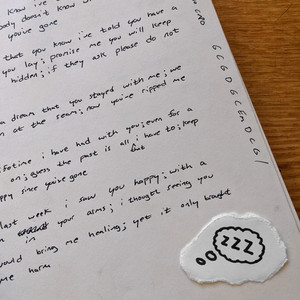 know i've
body doesn't know w
you've gone
that you know i've told you have a
you lay; promise me you will keep
hidden; if they ask please do not
a dream that you stayed with me; we
n at the seam; now you've ripped me
ifetime i have had with you; even for a
on; guess the past is all i have to; keep
that
ppy since you've gone
last week i saw you happy; with a
in your arms; i thought seeing you
would bring me healing; yet it only bought
me harm
G C G D G C Em D C G /
ZZZ